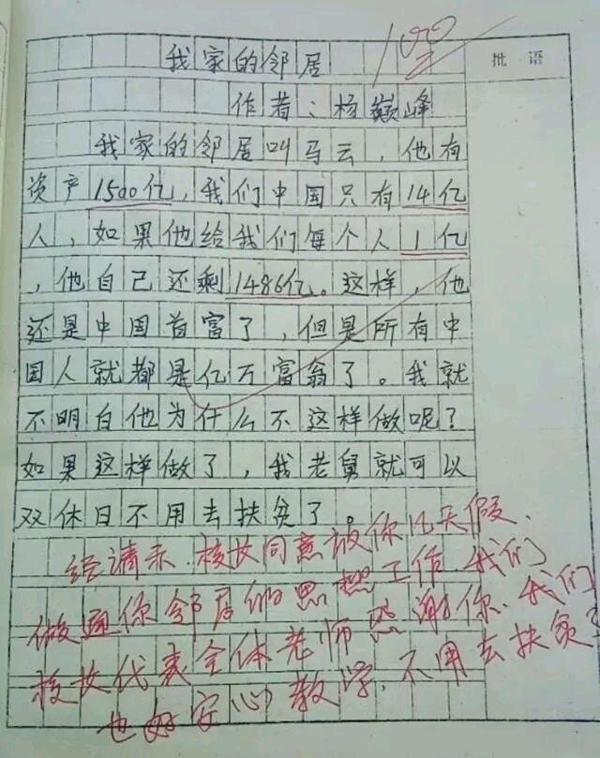 我家的邻居
100
批语
作者：杨巅峰
我家的邻居叫马云，他有
资产1500亿，我们中国只有14亿
人，如果他给我们每个人1亿
，他自己还剩1486亿。这样，他
还是中国首富了，但是所有中
国人就都是亿万富翁了。我就
不明白他为什么不这样做呢？
如果这样做了，我老舅就可以
双休日不用去扶贫了。
经请示，校长同意放你几天假，
做通你邻居的思想工作，我们
校长代表全体老师感谢你，我们
也好安心教学，不用去扶贫了